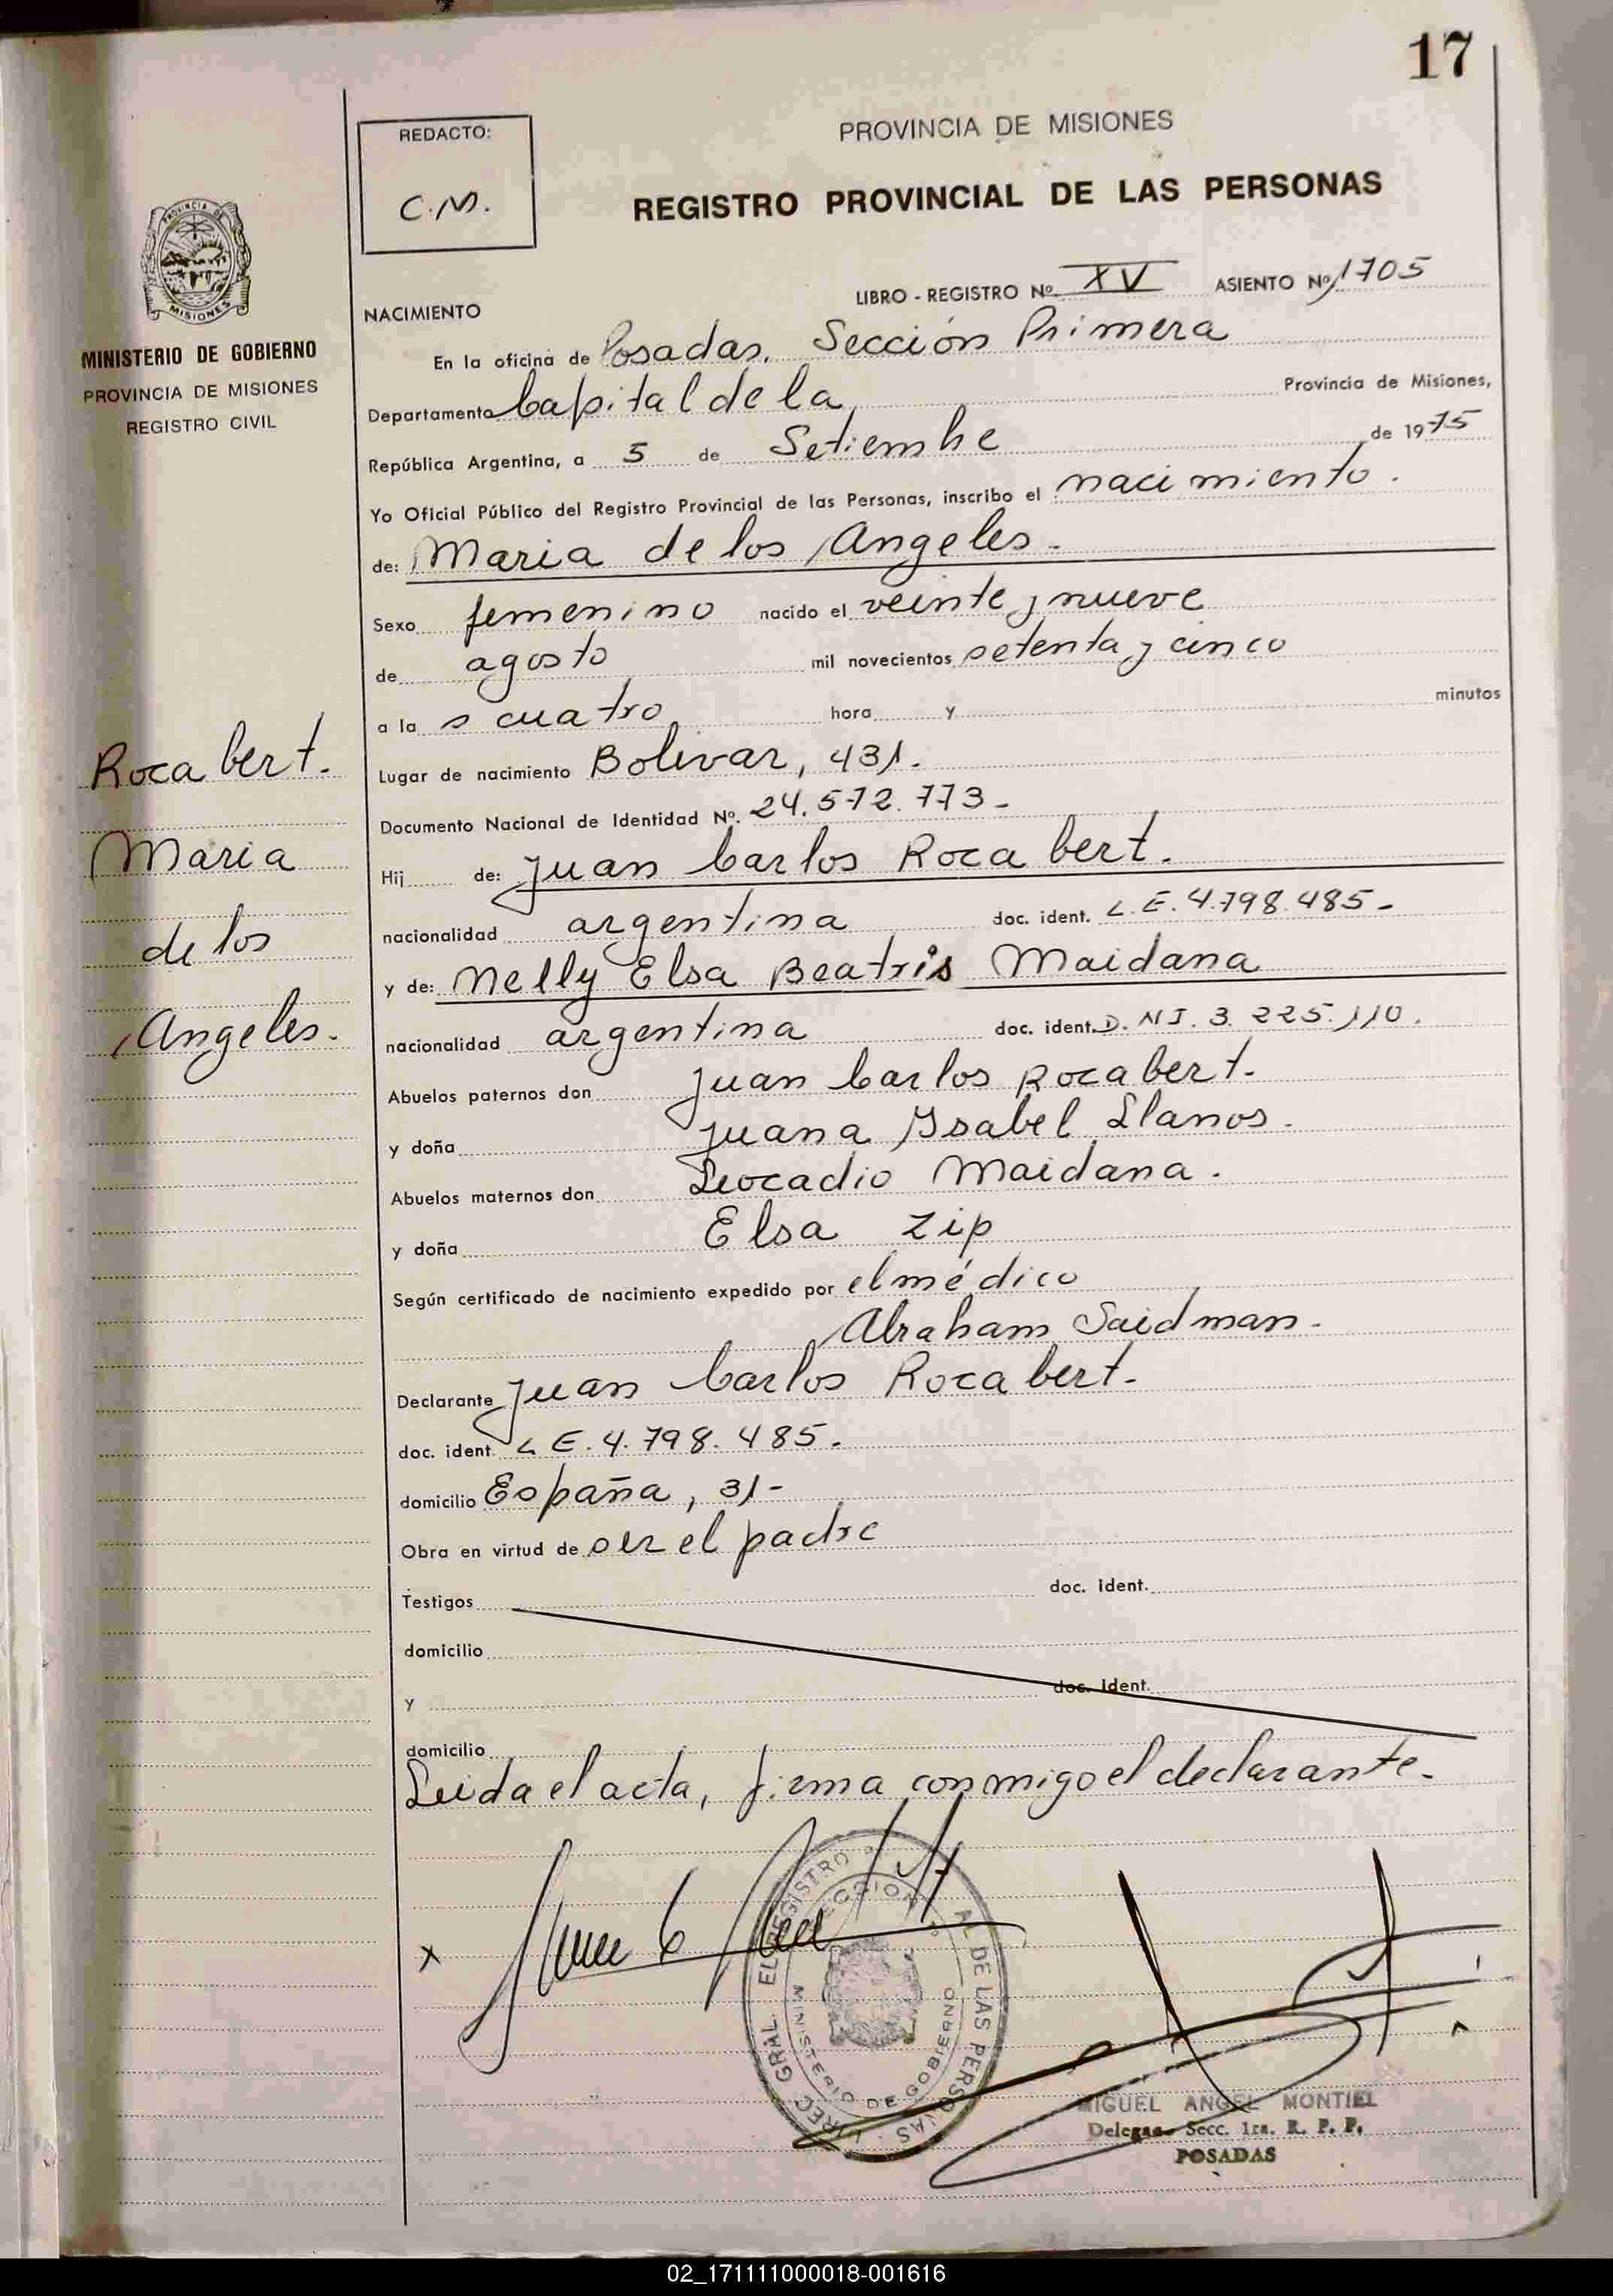 17
REDACTO:
C.M.
PROVINCIA DE MISIONES
REGISTRO PROVINCIAL DE LAS PERSONAS
MISIONES
MINISTERIO DE GOBIERNO
PROVINCIA DE MISIONES
REGISTRO CIVIL
LIBRO - REGISTRO Nº XV ASIENTO Nº 1705
NACIMIENTO
En la oficina de Posadas, Sección Primera
Departamento Capital de la Provincia de Misiones,
República Argentina, a 5 de Setiembre de 1975
Yo Oficial Público del Registro Provincial de las Personas, inscribo el nacimiento.
de: Maria de los Angeles.-
Sexo femenino nacido el veinte y nueve
de agosto mil novecientos setenta y cinco
a la s cuatro hora y minutos
Lugar de nacimiento Bolivar, 431.
Documento Nacional de Identidad Nº. 24.572.773-
Hij de: Juan Carlos Rocabert.
nacionalidad argentina doc. ident. L.E. 4.798.485-
y de: Nelly Elsa Beatris Maidana
nacionalidad argentina doc. ident. D.N.I. 3.225.110.
Abuelos paternos don Juan Carlos Rocabert.
y doña Juana Ysabel Llanos.
Abuelos maternos don Leocadio Maidana.
y doña Elsa Zip
Según certificado de nacimiento expedido por el médico
Abraham Saidman.
Declarante Juan Carlos Rocabert-
doc. ident. L E. 4. 798. 485.
domicilio España, 31-
Obra en virtud de ser el padre
Testigos doc. ident.
domicilio
y doc. ident.
domicilio
Leida el acta, firma conmigo el declarante-
Rocabert.
Maria
de los
Angeles.
x
MINISTERIO DE GOBIERNO
MIGUEL ANGEL MONTIEL
Delegado Secc. 1ra. R. P. P.
POSADAS
02_171111000018-001616